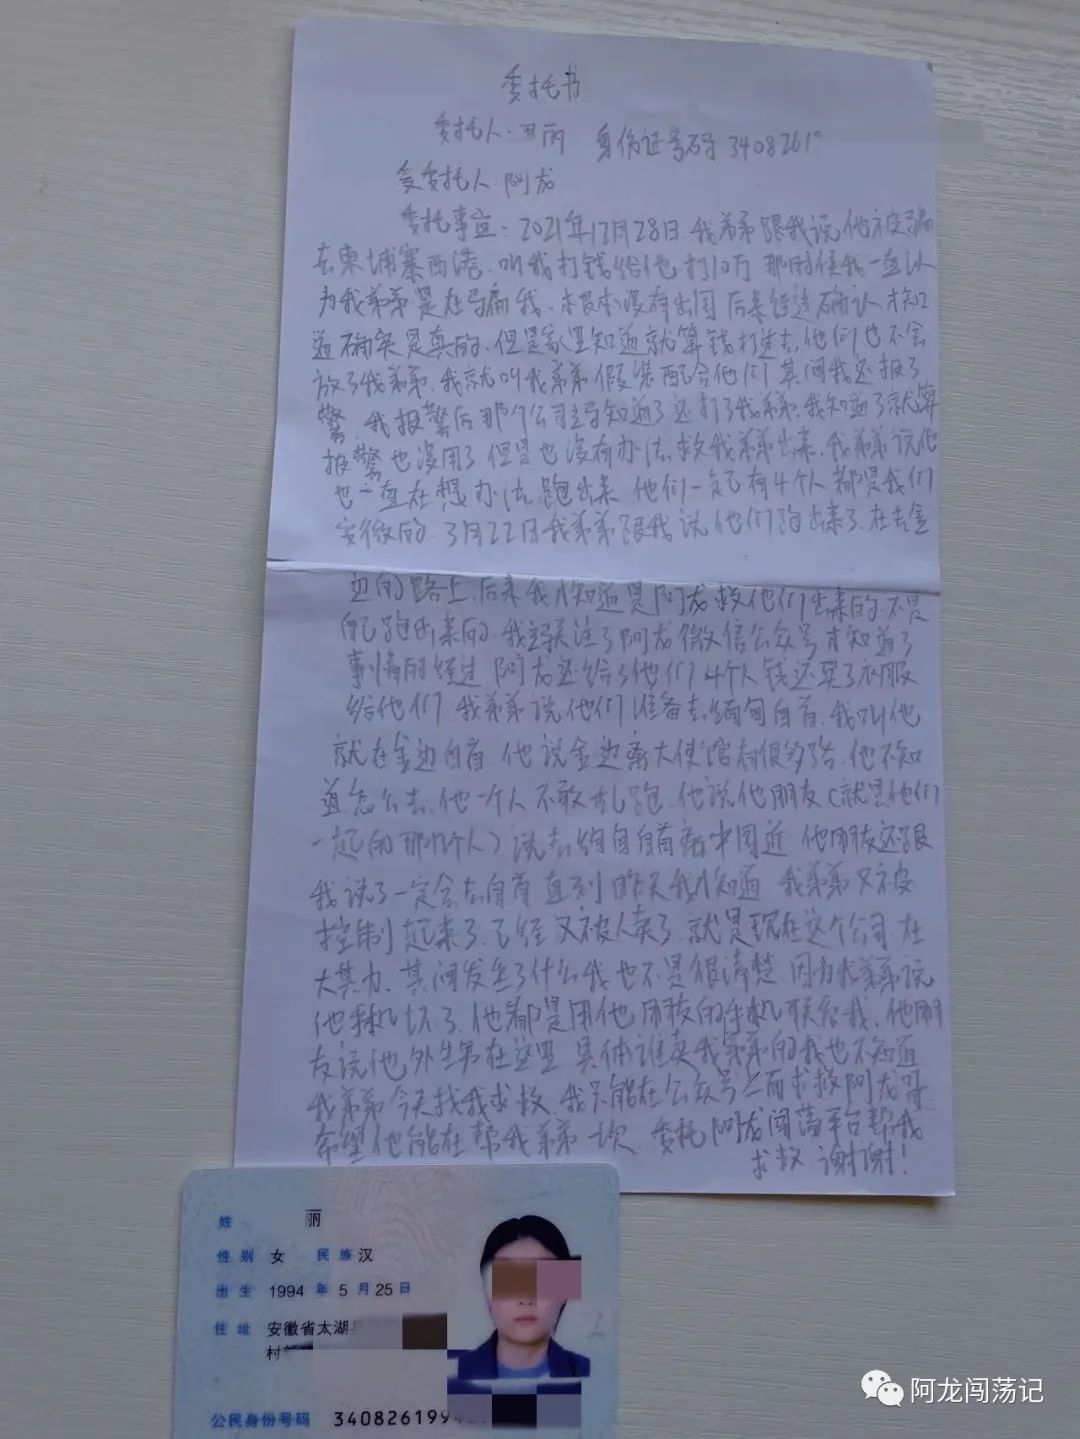 委托书
委托人:丽 身份证号码 3408261
受委托人:阿龙
委托事宜:2021年12月28日.我弟弟跟我说他被骗
去柬埔寨西港.叫我打钱给他打10万 那时候我一直以
为我弟弟是在骗我.根本没有出国 后来经过确认才知
道确实是真的.但是家里知道就算钱打过去.他们也不会
放了我弟弟.我就叫我弟弟假装配合他们 其间我还报了
警.我报警后那个公司知道了还打了我弟弟.我知道了就算
报警也没用了 但是也没有办法救我弟弟出来.我弟弟说他
也一直在想办法跑出来 他们一起有4个人都是我们
安徽的.3月22日我弟弟跟我说他们跑出来了.在去金
边的路上.后来我才知道是阿龙救他们出来的.不是
自己跑出来的.我关注了阿龙微信公众号才知道了
事情的经过 阿龙还给了他们4个人钱还买了衣服
给他们 我弟弟说他们准备去缅甸自首.我叫他
就在金边自首 他说金边离大使馆有很多路.他不知
道怎么去.他一个人不敢乱跑.他说他朋友(就是他们
一起的那几个人)说去缅甸自首离中国近 他朋友还跟
我说了一定会去自首 直到昨天我才知道 我弟弟又被
控制起来了.已经又被人卖了.就是现在这个公司.在
大其力.其间发生了什么我也不是很清楚 因为我弟弟说
他手机坏了.他都是用他朋友的手机联系我.他朋
友说他外生男在这里 具体谁卖我弟弟的我也不知道
我弟弟今天找我求救.我只能在公众号上面求救阿龙哥
希望他能在帮我弟弟一次 委托阿龙闯荡平台帮我
求救.谢谢!
姓 丽
性别 女 民族 汉
出生 1994 年 5 月 25 日
住址 安徽省太湖
村
公民身份号码 340826199
阿龙闯荡记